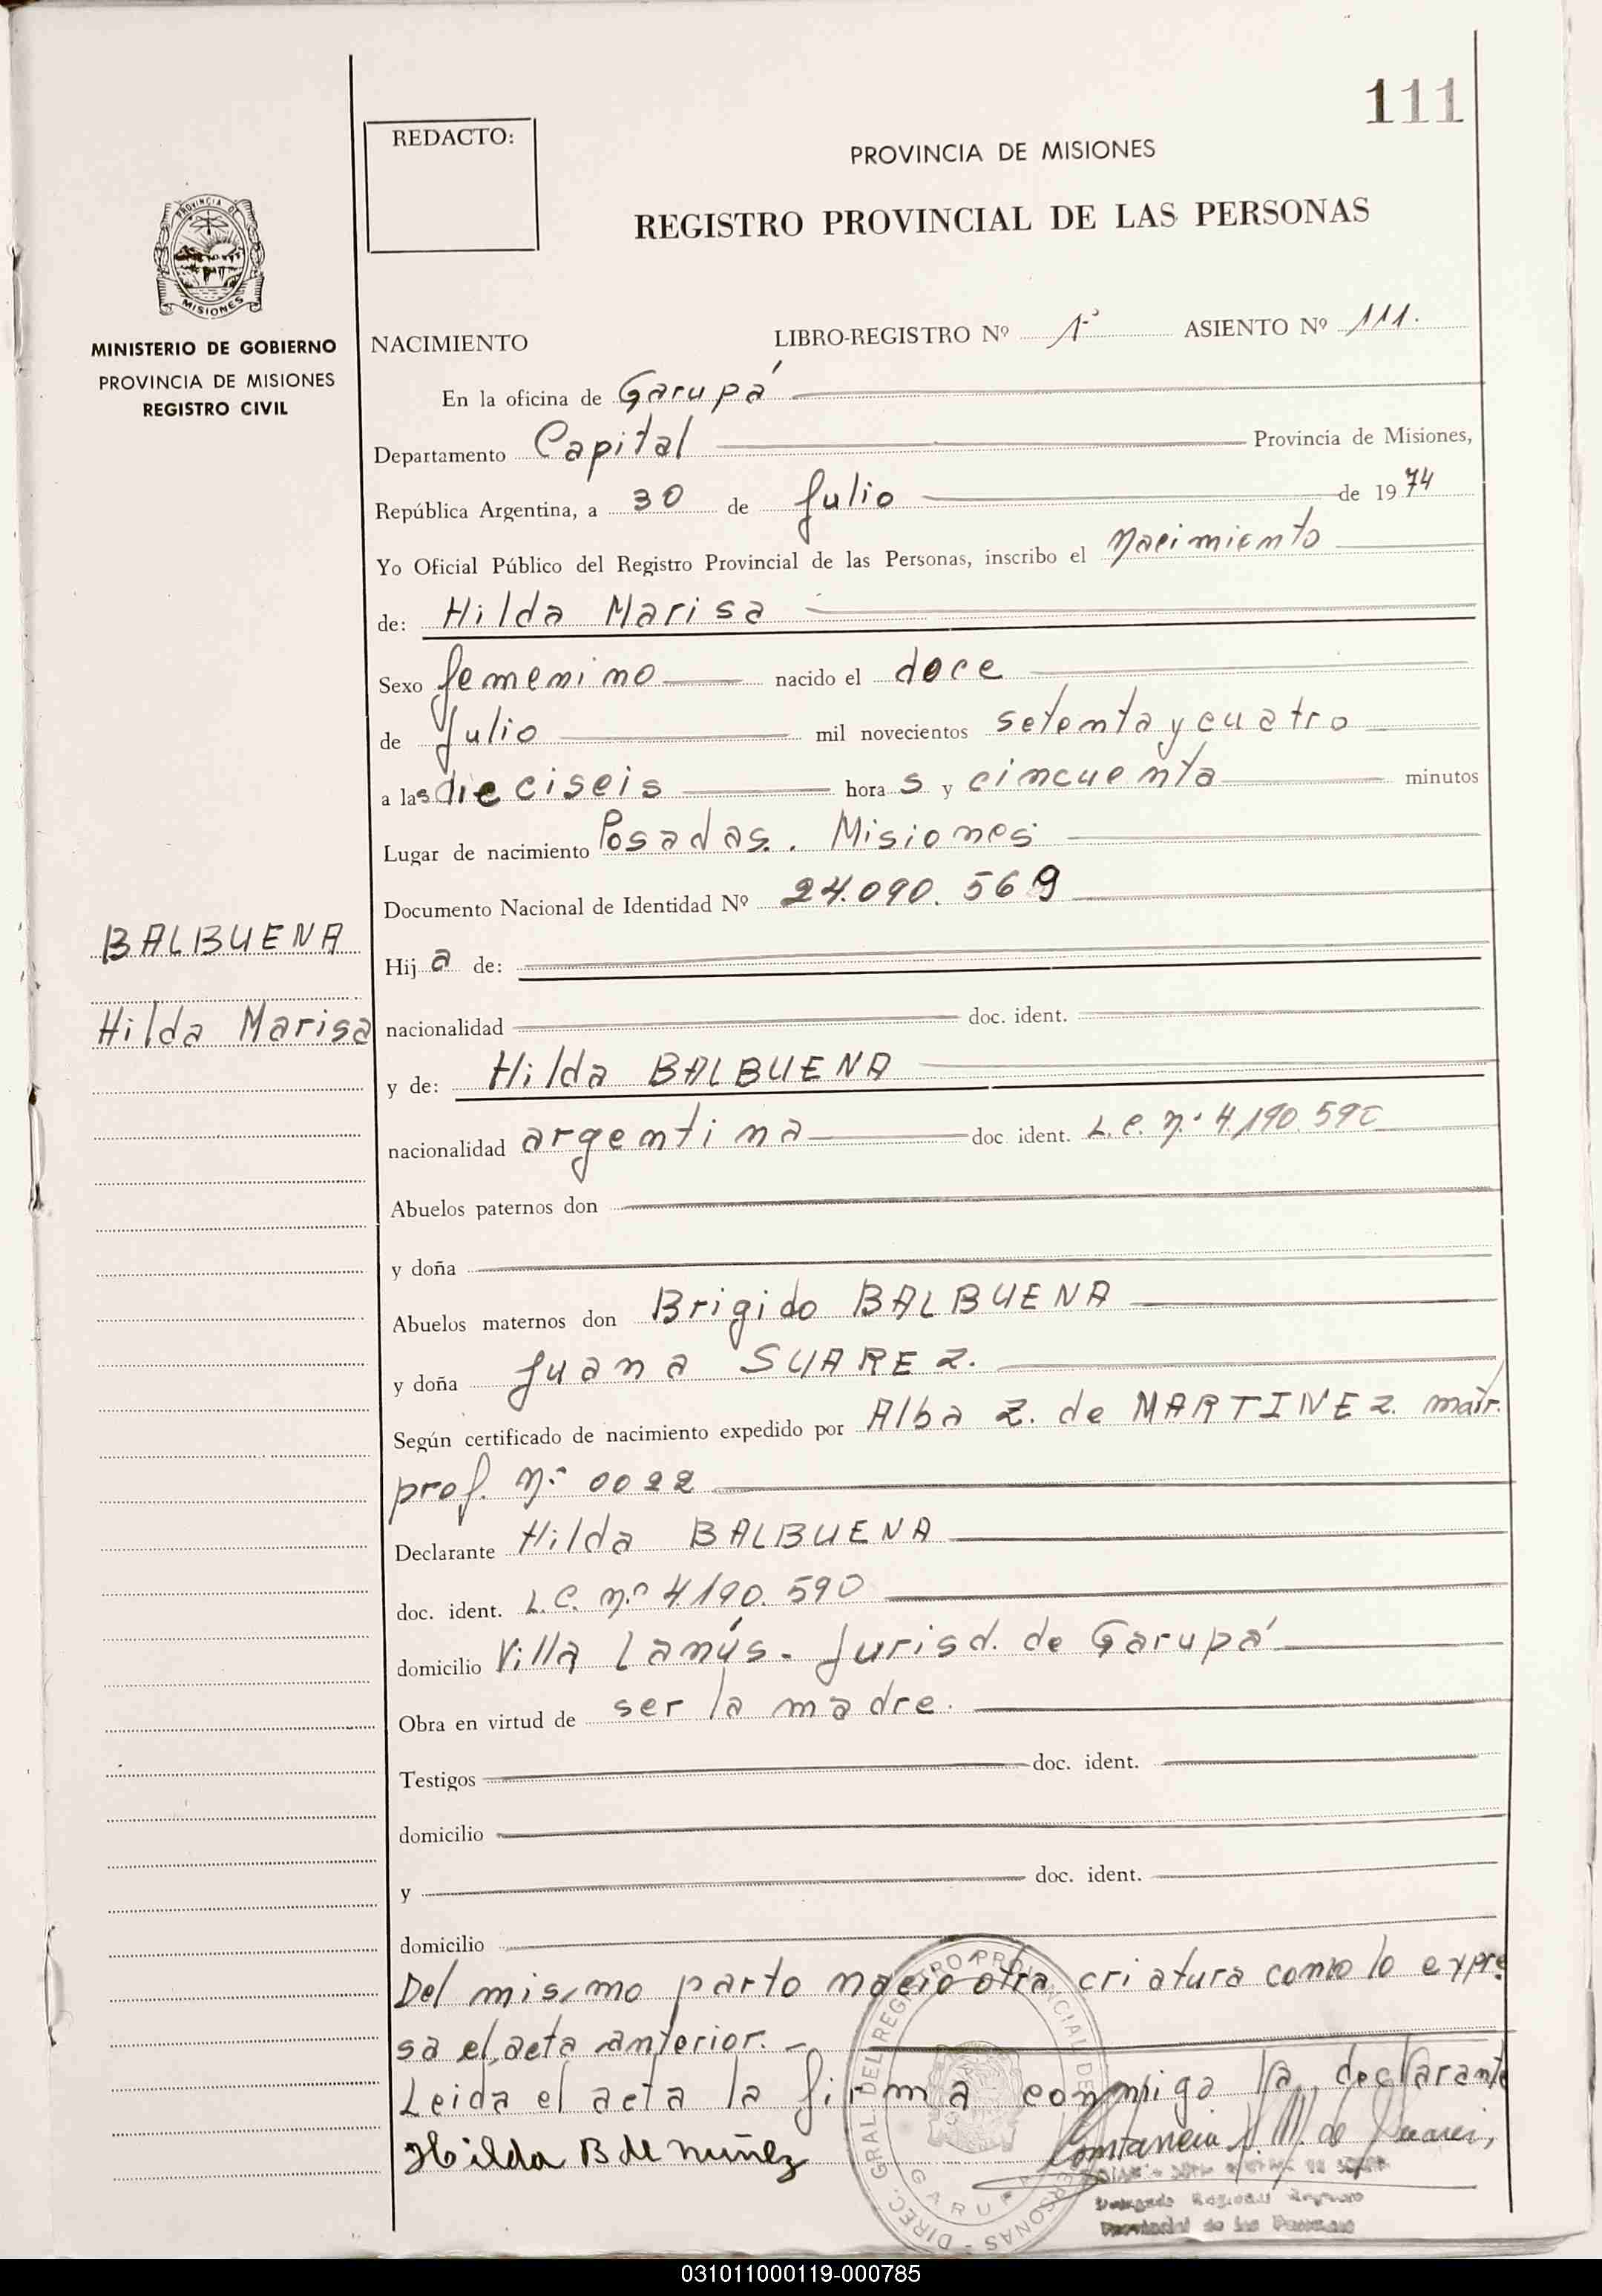 111
REDACTO:
PROVINCIA DE MISIONES
REGISTRO PROVINCIAL DE LAS PERSONAS
PROVINCIA DE
MISIONES
MINISTERIO DE GOBIERNO
PROVINCIA DE MISIONES
REGISTRO CIVIL
NACIMIENTO LIBRO-REGISTRO Nº 1º ASIENTO Nº 111.
En la oficina de Garupá
Departamento Capital Provincia de Misiones,
República Argentina, a 30 de Julio de 1974
Yo Oficial Público del Registro Provincial de las Personas, inscribo el Nacimiento
de: Hilda Marisa
Sexo femenino nacido el doce
de Julio mil novecientos setenta y cuatro
a las dieciseis horas y cincuenta minutos
Lugar de nacimiento Posadas. Misiones
Documento Nacional de Identidad Nº 24.090.569
BALBUENA
Hija de:
Hilda Marisa
nacionalidad doc. ident.
y de: Hilda BALBUENA
nacionalidad argentina doc ident. L.C. Nº 4.190.590
Abuelos paternos don
y doña
Abuelos maternos don Brigido BALBUENA
y doña Juana SUAREZ.
Según certificado de nacimiento expedido por Alba Z. de MARTINEZ. matr.
prof. Nº 0022
Declarante Hilda BALBUENA
doc. ident. L.C. Nº 4.190.590
domicilio Villa Lanús - Jurisd. de Garupá
Obra en virtud de ser la madre.
Testigos doc. ident.
domicilio
y doc. ident.
domicilio
Del mismo parto nacio otra criatura como lo expre
sa el acta anterior. -
Leida el acta la firma conmigo la declarante
Hilda B de Nuñez
Constancia
DIREC. GRAL. DEL REGISTRO PROVINCIAL DE LAS PERSONAS - GARUPA
Delegado Regional Registro
Provincial de las Personas
031011000119-000785